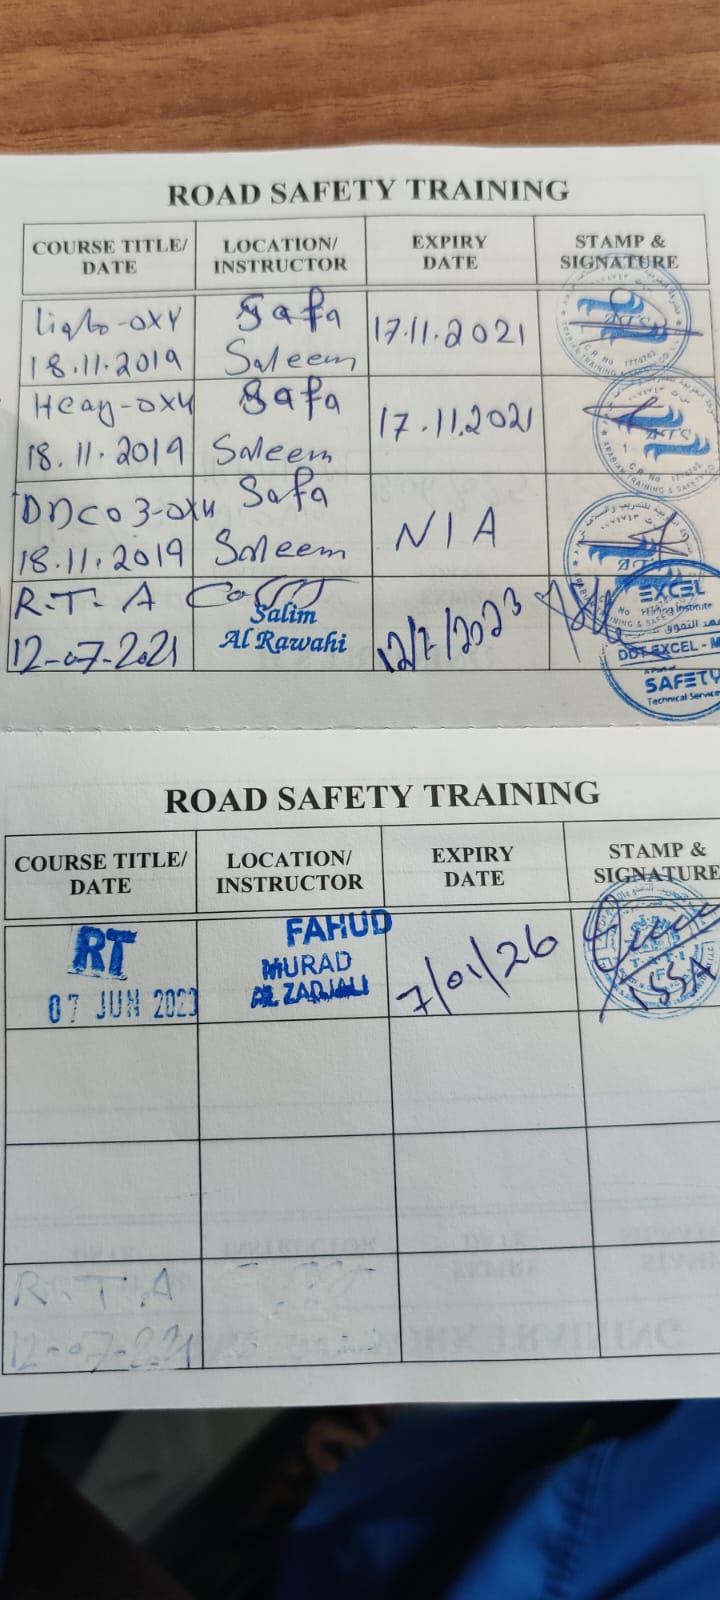 ROAD SAFETY TRAINING
COURSE TITLE/ DATE
LOCATION/ INSTRUCTOR
EXPIRY DATE
STAMP & SIGNATURE
Light-OXY
18.11.2019
Safa
Saleem
17.11.2021
Heay-OXY
18.11.2019
Safa
Saleem
17.11.2021
DDC03-OXY
18.11.2019
Safa
Saleem
N/A
R.T.A
12-07-2021
Salim
Al Rawahi
12/7/2023
EXCEL
Training Institute
DDT EXCEL - M
SAFETY
Technical Service
ROAD SAFETY TRAINING
COURSE TITLE/ DATE
LOCATION/ INSTRUCTOR
EXPIRY DATE
STAMP & SIGNATURE
RT
07 JUN 2023
FAHUD
MURAD
AL ZADJALI
7/01/26
ISSA